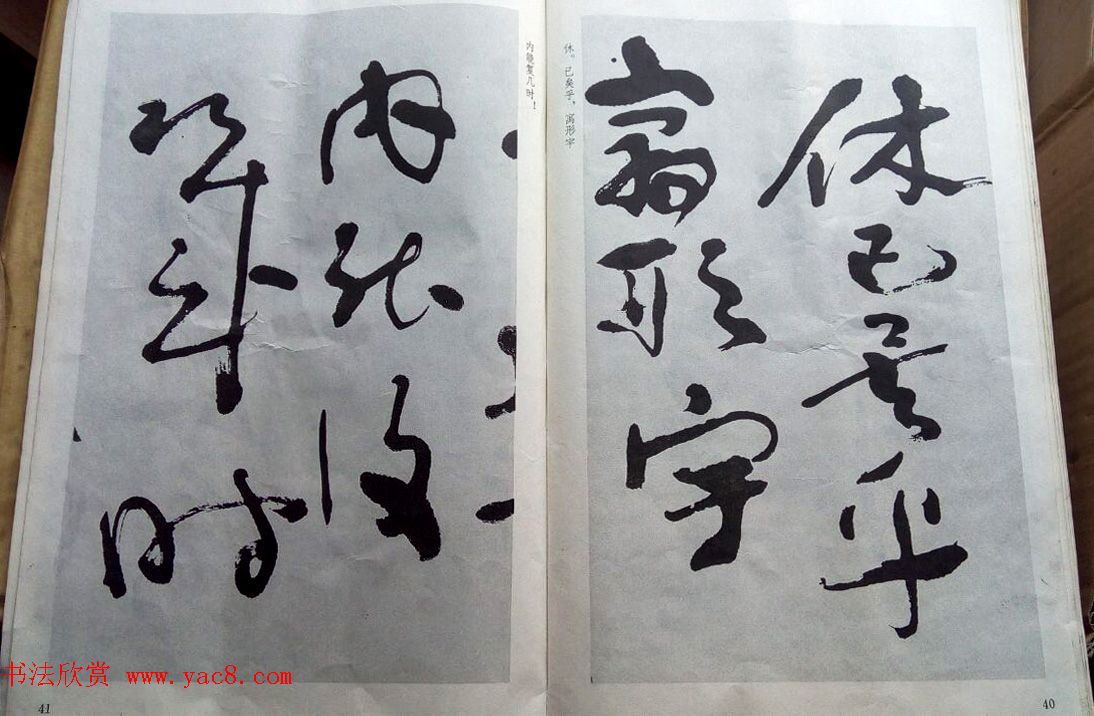 休已矣乎
寓形宇
休。已矣乎,寓形宇
内能復
幾時
内能复几时!
书法欣赏 www.yac8.com
40
41